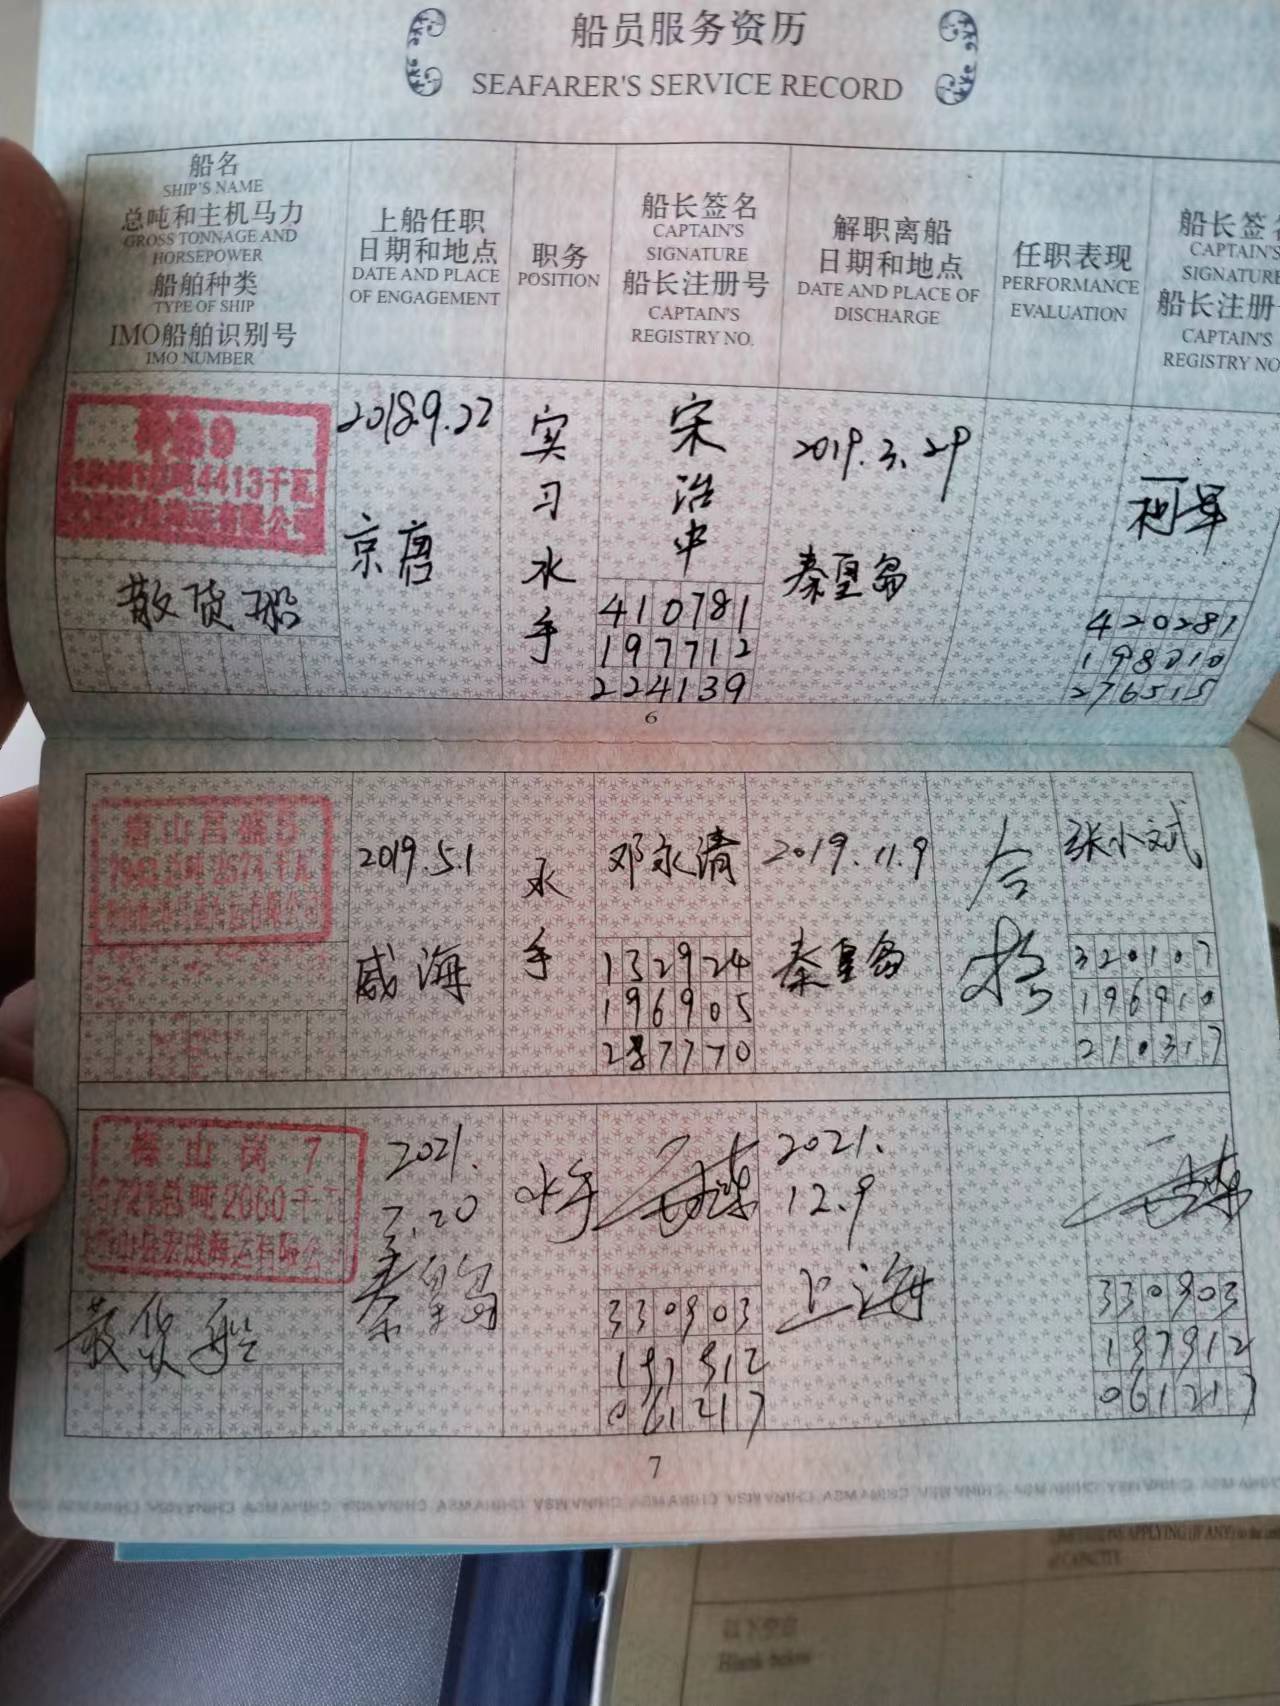 船员服务资历
SEAFARER'S SERVICE RECORD
船名
SHIP'S NAME
总吨和主机马力
GROSS TONNAGE AND
HORSEPOWER
船舶种类
TYPE OF SHIP
IMO船舶识别号
IMO NUMBER
上船任职
日期和地点
DATE AND PLACE
OF ENGAGEMENT
职务
POSITION
船长签名
CAPTAIN'S
SIGNATURE
船长注册号
CAPTAIN'S
REGISTRY NO.
解职离船
日期和地点
DATE AND PLACE OF
DISCHARGE
任职表现
PERFORMANCE
EVALUATION
船长签
CAPTAIN'S
SIGNATURE
船长注册
CAPTAIN'S
REGISTRY NO
4413千瓦
散货船
2018.9.22
京唐
实习水手
宋
治
中
410781
197712
224139
2019.3.29
秦皇岛
420281
198010
276515
6
唐山昌盛
2574千瓦
2019.5.1
威海
水
手
邓永清
132924
196905
287770
2019.11.9
秦皇岛
合
格
张小斌
320107
196910
210317
山岗 7
总吨2060千
海运有限公
散货船
2021.
7.20
秦皇岛
水手
330903
197912
061217
2021.
12.9
上海
330903
197912
061217
7
CHINA MSA CHINA MSA CHINA MSA
APPLYING (IF ANY)
CAPACITY
以下空白
Blank below